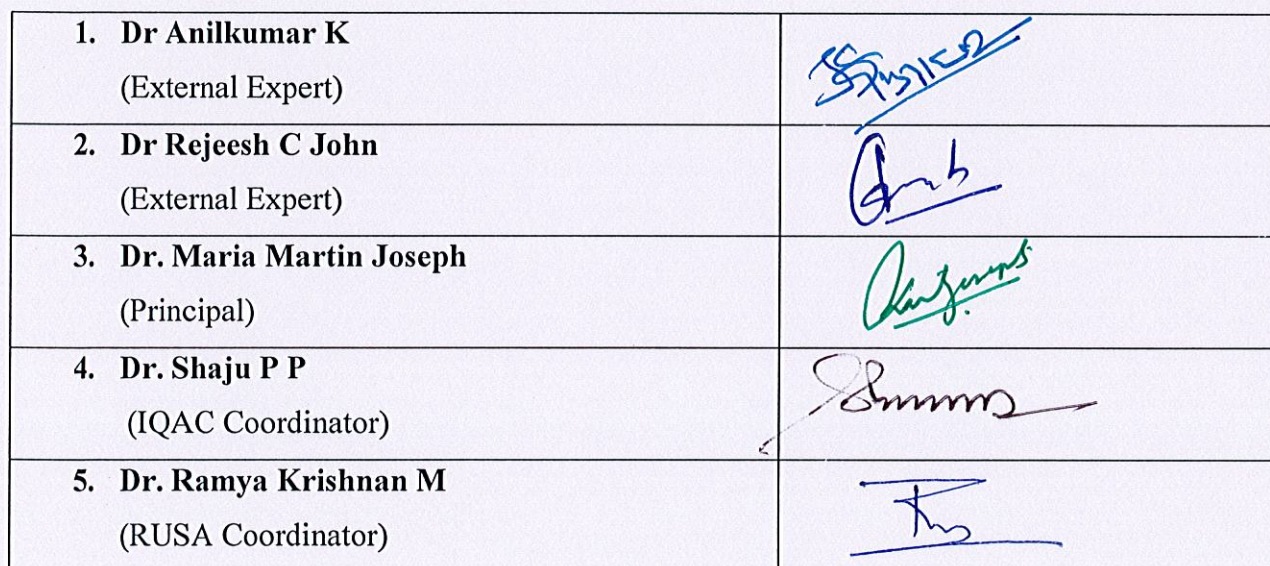 1. Dr Anilkumar K
(External Expert)
2. Dr Rejeesh C John
(External Expert)
3. Dr. Maria Martin Joseph
(Principal)
4. Dr. Shaju P P
(IQAC Coordinator)
5. Dr. Ramya Krishnan M
(RUSA Coordinator)